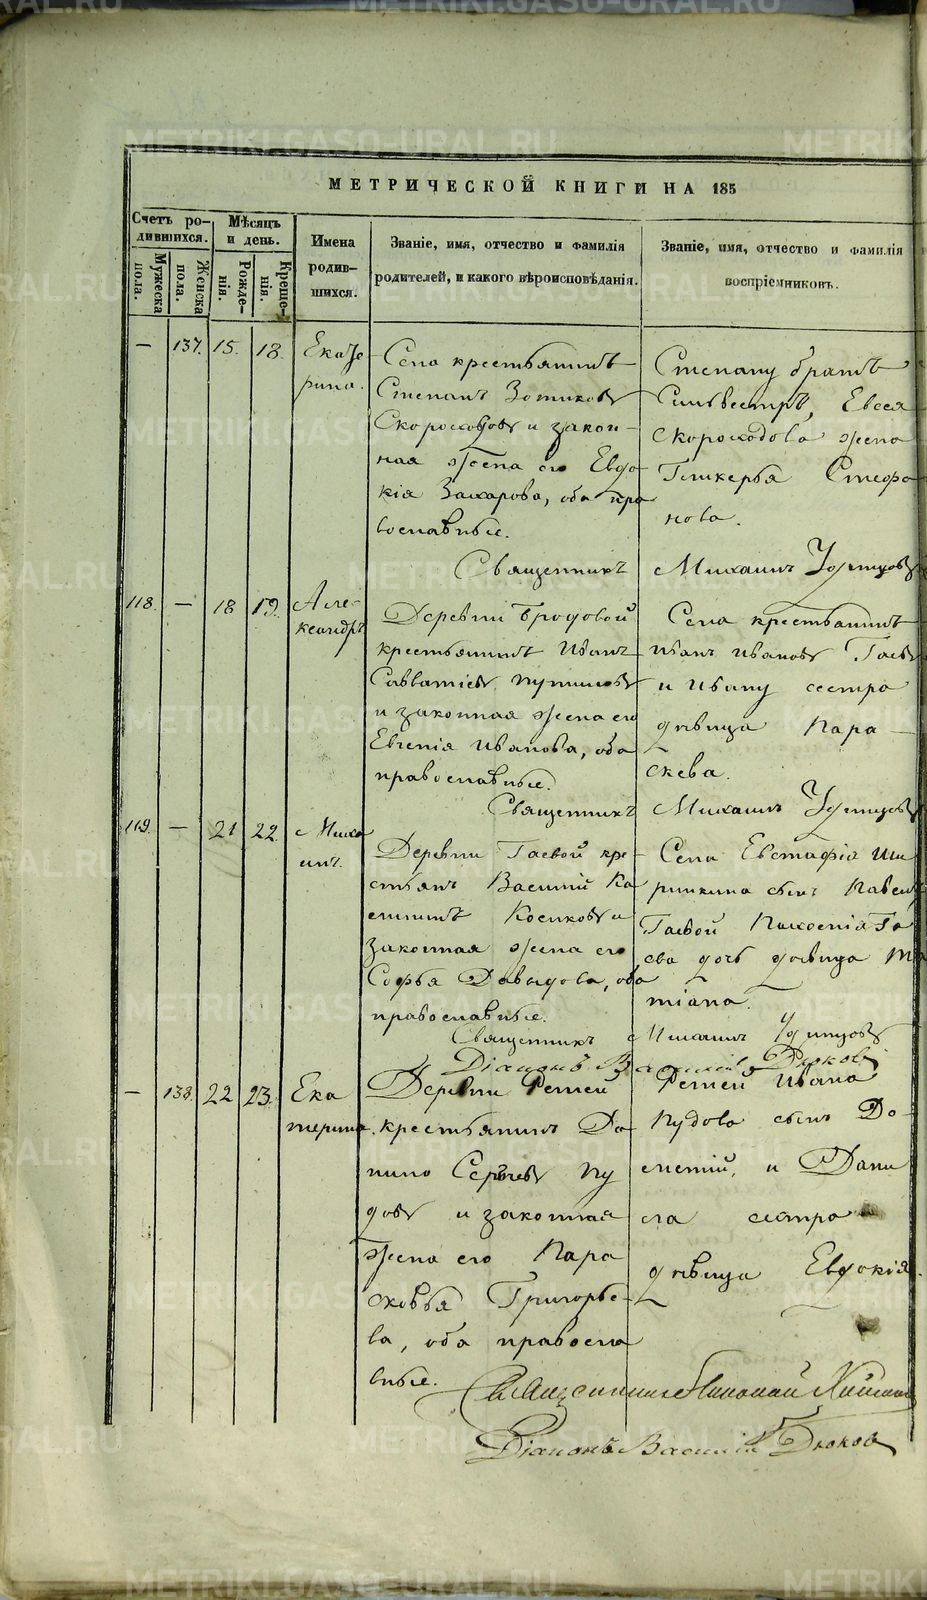 МЕТРИЧЕСКОЙ КНИГИ НА 185
Счетъ ро-
дившихся.
Мужеска
пола.
Женска
пола.
Мѣсяцъ
и день.
Рожде-
нія.
Креще-
нія.
Имена
родив-
шихся.
Званіе, имя, отчество и фамилія
родителей, и какого вѣроисповѣданія.
Званіе, имя, отчество и фамилія
воспріемниковъ.
— 137. 15. 18.
Екате
рина.
Села крестьянинъ
Степанъ Зотиковъ
Скороходовъ и закон-
ная жена его Евдо
кія Захарова, оба пра
вославные.
Степану братъ
Сильвестръ, Евсея
Скороходова жена
Гликерья Стефа
нова.
Священникъ Михаилъ Удинцовъ
118. — 18 19.
Алек-
ксандръ
Деревни Бродовой
крестьянинъ Иванъ
Савватіевъ Путиловъ
и законная жена его
Евгенія Иванова, оба
православные.
Села крестьянинъ
Иванъ Ивановъ Гаевъ
и Ивану сестра
дѣвица Пара-
скева.
Священникъ Михаилъ Удинцовъ
119. — 21 22.
Миха
илъ.
Деревни Гаевой кре-
стьянъ Василій Ка
Косиковъ и
законная жена его
Софья Давыдова, оба
православные.
Села Евстафія Ши
ринкина сынъ Павелъ,
Гаевой Га
ева дочь дѣвица Та
тіана.
Священникъ Михаилъ Удинцовъ
Діаконъ Василій Дюковъ
— 138. 22 23.
Ека
терина.
Деревни Речкой
крестьянинъ Да
нило Сергѣевъ Пу
довъ и законная
жена его Пара
сковья Григорье-
ва, оба правосла
вные.
Ивана
Пудова сынъ До-
метій, и Дани
ла сестра
дѣвица Евдокія.
Священникъ Николай
Діаконъ Василій Дюковъ
METRIKI.GASO-URAL.RU